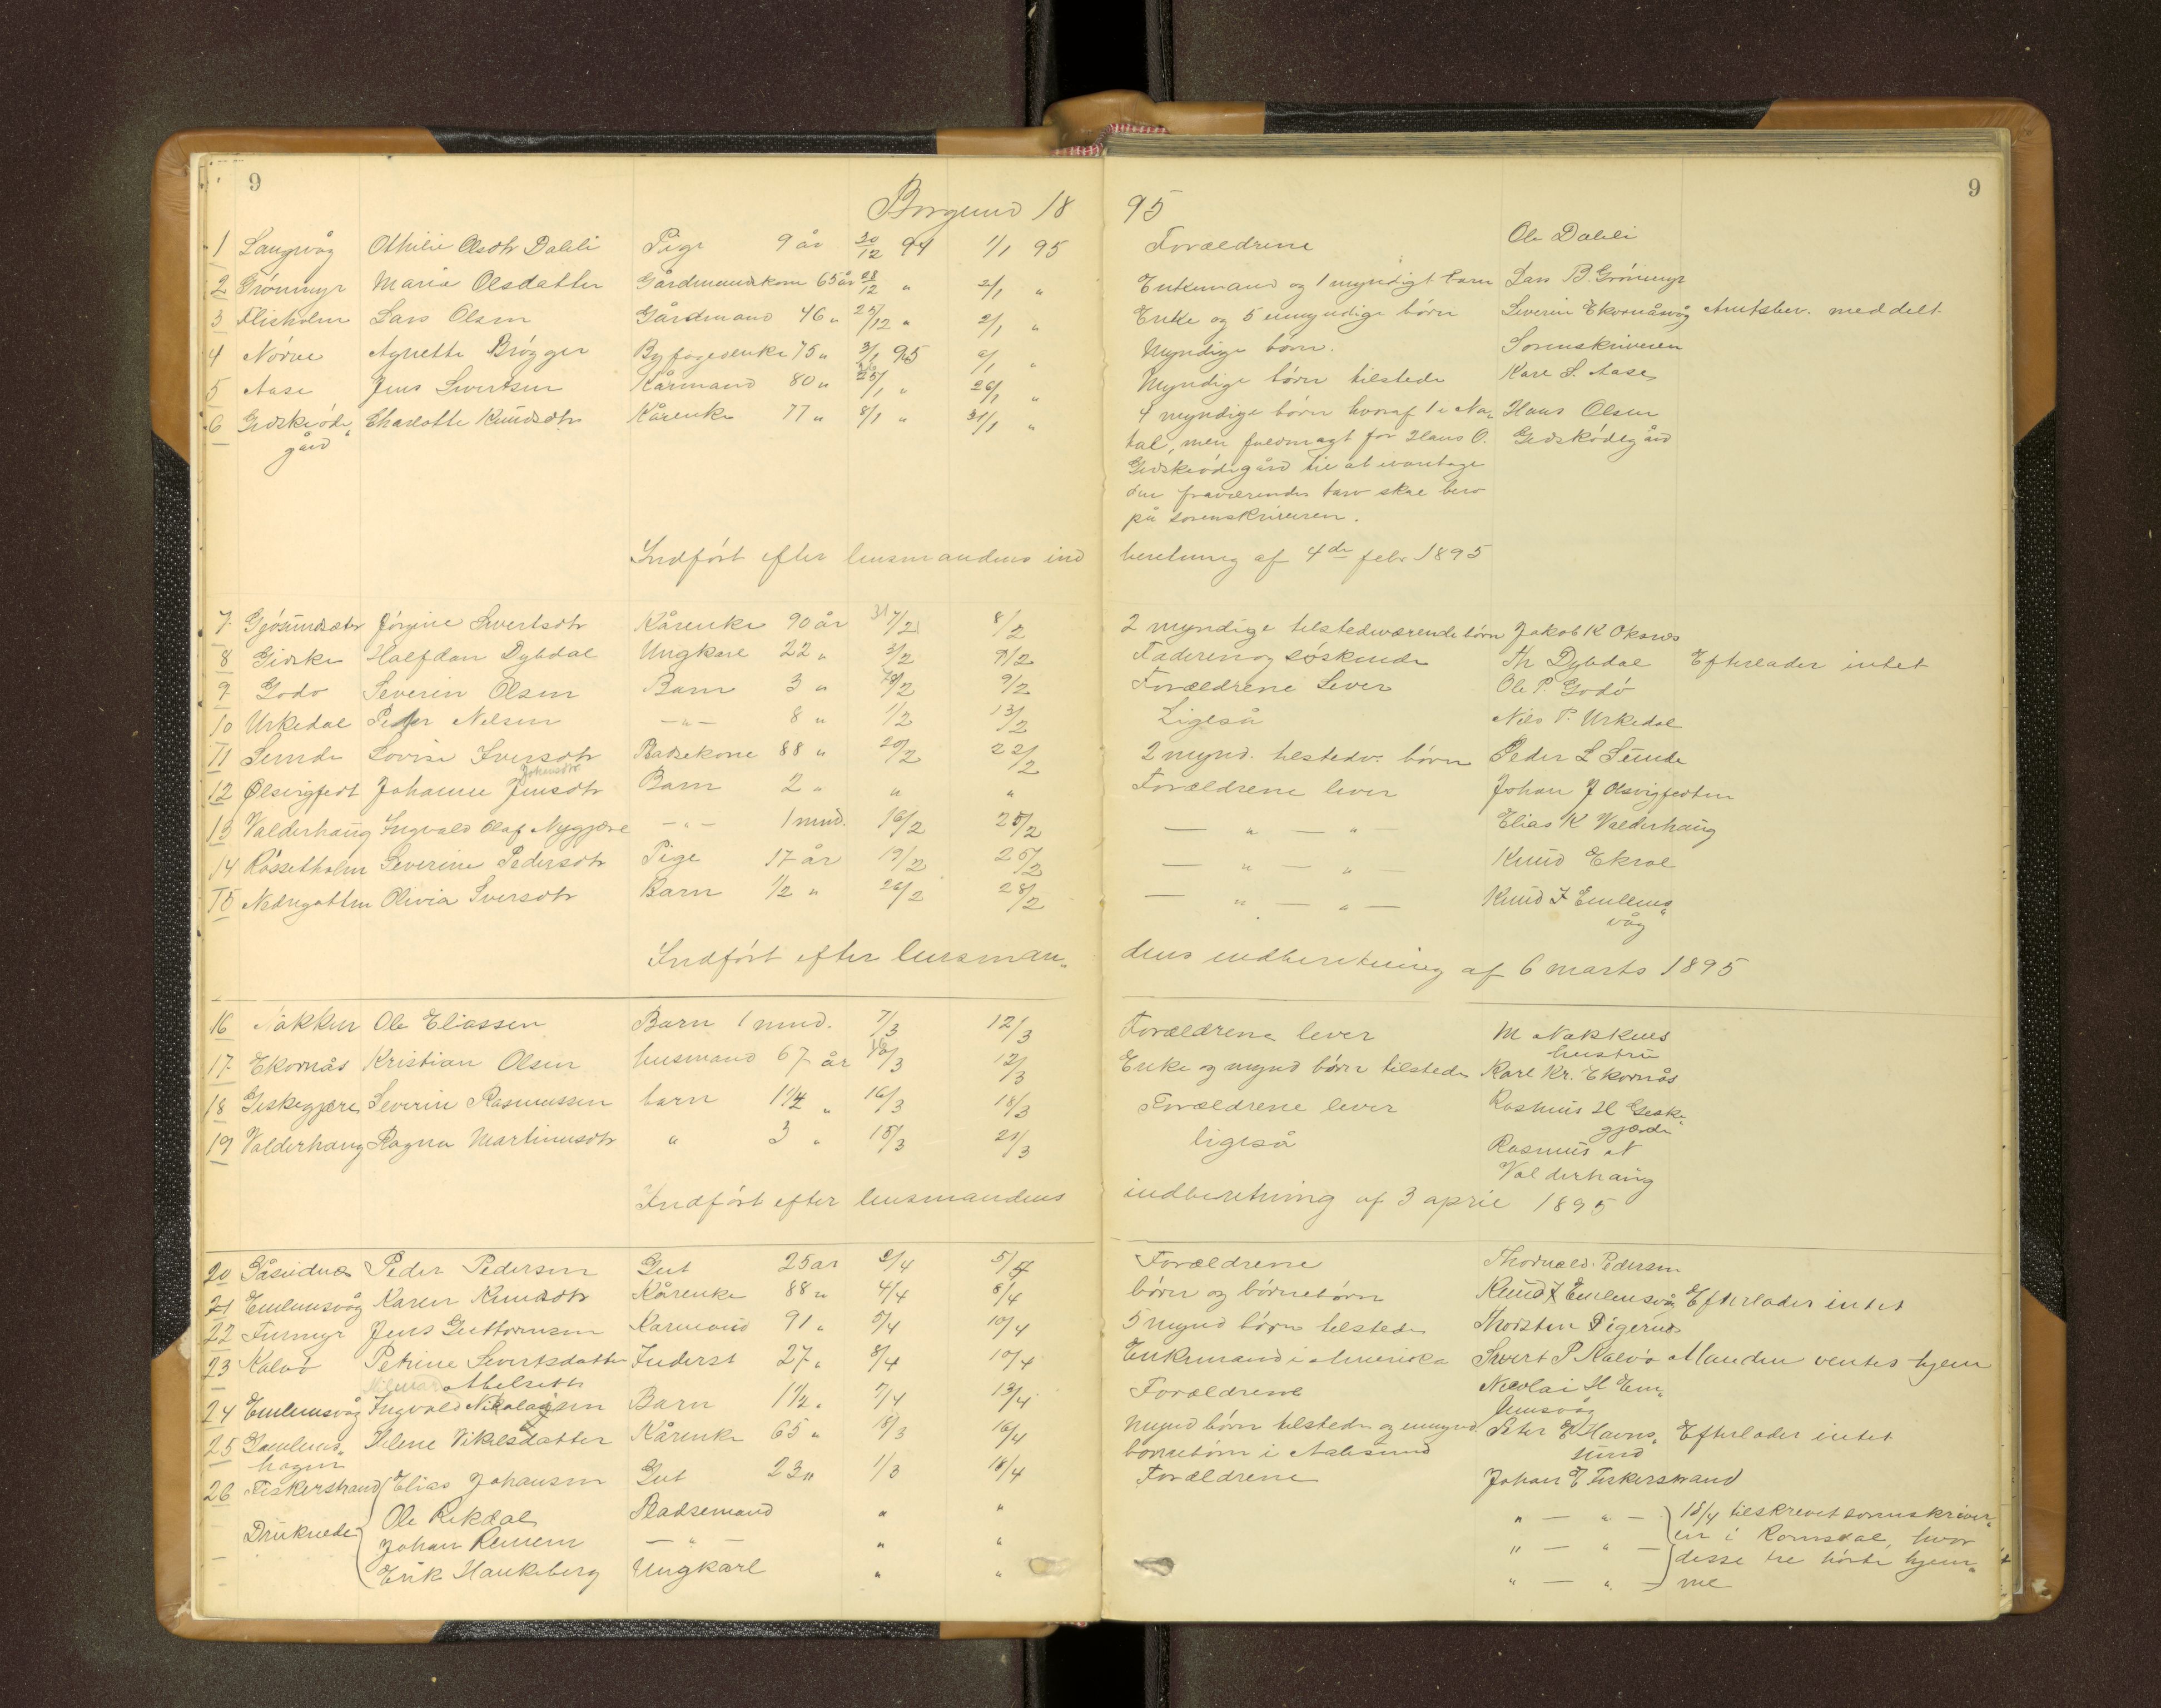 9
9
Borgund 18 95
1 Langvåg Othilie Olsdtr Dalili Pige 9 år 30/12 94 1/1 95 Forældrene Ole Dalili
2 Grönmyr Maria Olsdatter Gårdmandskone 65 år 28/12 " 2/1 " Enkemand og 1 myndigt barn Lars B. Grönmyr
3 Flisholm Lars Olsen Gårdmand 46 " 25/12 " 2/1 " Enke og 5 umyndige börn Severin Ekornåsvåg Amtsbev. meddelt
4 Nörve Agnette Brögger Byfogedenke 75 " 3/1 95 /1 " Myndige börn. Sorenskriveren
5 Aase Jens Sivertsen Kårmand 80 " /1 " 26/1 " Myndige börn tilstede Karl S. Aase
6 Gidskeöde„ Charlotte Knudsdtr Kårenke 77 " 8/1 " 31/1 " 4 myndige börn hvoraf 1 i Na„ Hans Olsen
gård tal, men fuldmagt for Hans O. Gidsködegård
Gidskeödegård til at ivaretage
den fraværendes tarv skal bero
på sorenskriveren.
Indfört efter lensmandens ind beretning af 4de febr 1895
7 Gjösundsæter Jörgine Sivertsdtr Kårenke 90 år /2 8/2 2 myndige tilstedeværende börn Jakob K Oksnes
8 Gidske Halfdan Dybdal Ungkarl 22 " 3/2 9/2 Faderen og söskende Th Dybdal Efterlader intet
9 Godö Severin Olsen Barn 3 " /2 9/2 Forældrene lever Ole P. Godö
10 Urkedal Peter Nilsen — " — 8 " 1/2 13/2 Ligeså Nils P. Urkedal
11 Sunde Lovise Iversdtr Pladsekone 88 " 20/2 22/2 2 mynd. tilstedv. börn Peder L Sunde
Johansdtr
12 Ølsvigfedt Johanne Jensdtr Barn 2 " " " Forældrene lever Johan J Olsvigfedten
13 Valderhaug Ingvald Olaf Nygjære — " — 1 mnd. 16/2 25/2 — " — " — Elias K Valderhaug
14 Rössetholm Severine Pedersdtr Pige 17 år 19/2 25/2 — " — " — Knud Ekroe
15 Nedregotten Olivia Iversdtr Barn 1/2 " 26/2 28/2 — " — " — Knud I Emlems„
våg
Indfört efter lensman„ dens indberetning af 6 marts 1895
16 Nakken Ole Eliassen Barn 1 mnd. 7/3 12/3 Forældrene lever M Nakkens
hustru
17 Ekornås Kristian Olsen husmand 67 år /3 12/3 Enke og mynd börn tilstede Karl Kr. Ekornås
18 Giskegjære Severin Rasmussen barn 1 1/4 " 16/3 18/3 Forældrene lever Rasmus H Giske„
gjærde
19 Valderhaug Ragna Martinusdtr " 3 " 15/3 21/3 ligeså Rasmus N
Valderhaug
Indfört efter lensmandens indberetning af 3 april 1895
20 Gåseidnes Peder Pedersen Gut 25 år 2/4 5/4 Forældrene Thorvald Pedersen
21 Emlemsvåg Karen Knudsdtr Kårenke 88 " 4/4 8/4 börn og börnebörn Knud I Emlemsvåg Efterlader intet
22 Furmyr Jens Guttormsen Karmand 91 " 5/4 10/4 5 mynd börn tilstede Thorsten Pigerud
23 Kalvö Petrine Sivertsdatter Inderst 27 " 8/4 10/4 Enkemand i Amerika Sivert P Kalvö Manden ventes hjem
Abelseth
24 Emlemsvåg Ingvald Nikolaisen Barn 1 1/2 " 7/4 13/4 Forældrene Nicolai H Em„
lemsvåg
25 Gamlems„ Helene Vikelsdatter Kårenke 65 " 18/3 16/4 Mynd börn tilstede og umynd Peter E Havns„ Efterlader intet
hagen börnebörn i Aalesund sund
26 Fiskerstrand Elias Johansen Gut 23 " 1/3 18/4 Forældrene Johan E Fiskerstrand
Ole Rekdal Pladsemand " " " — " — 18/4 tilskrevet sorenskriver„
Druknede Johan Remem — " — " " " — " — en i Romsdal, hvor
desse tre hörte hjem„
Erik Haukeberg Ungkarl " " " — " — me